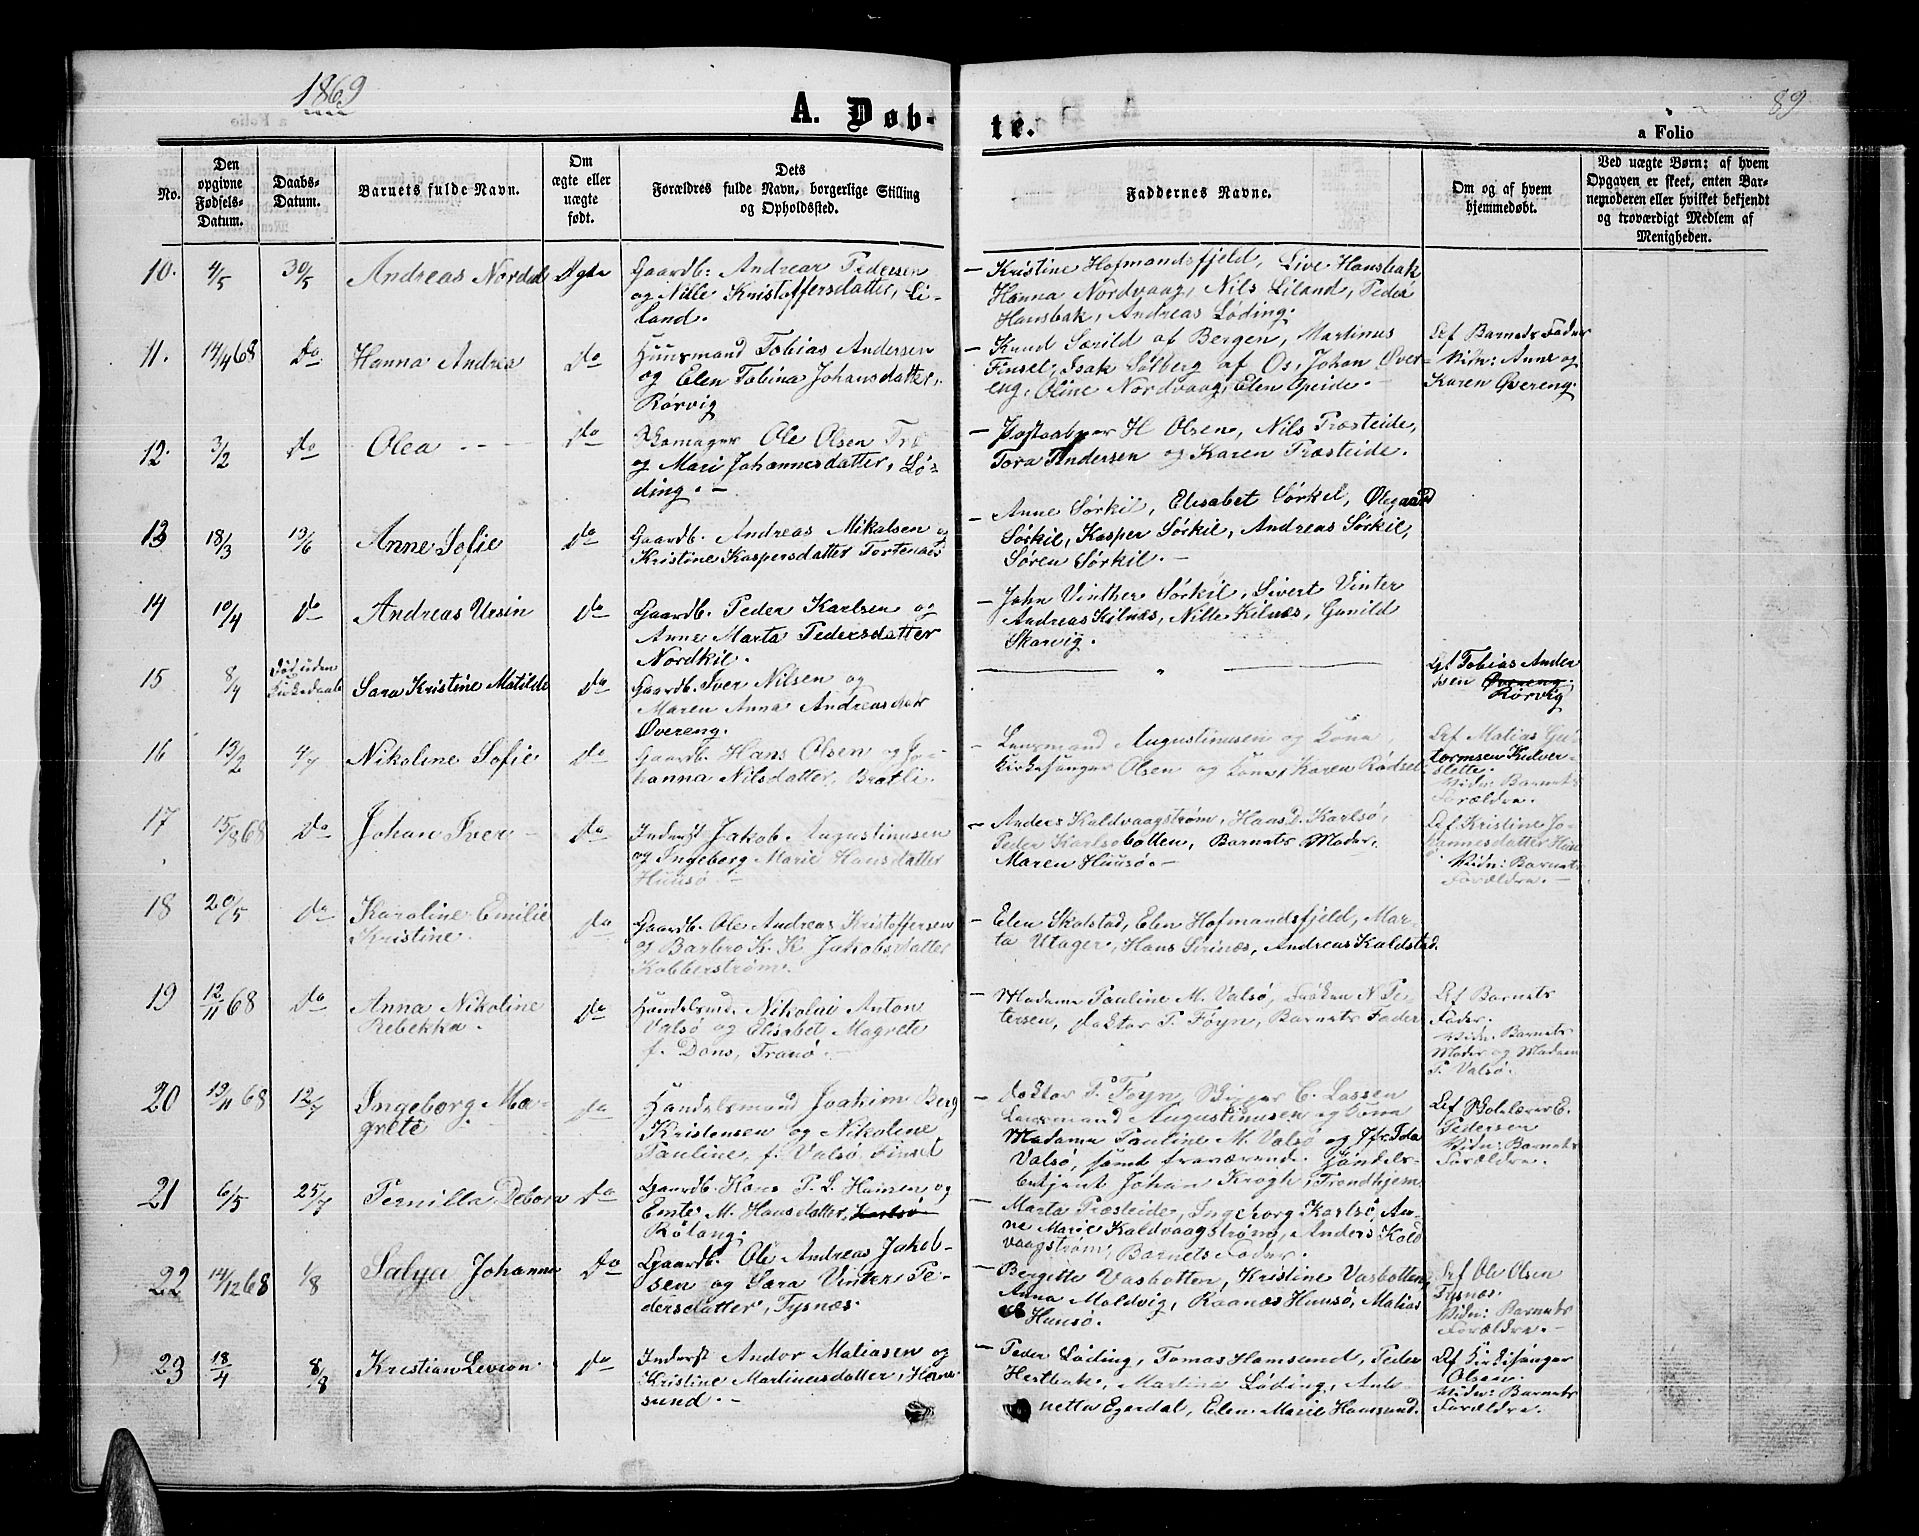 1869
89
A. Døb-
te.
a Folio
No.
Den
opgivne
Fødsels-
Datum.
Daabs-
Datum.
Barnets fulde Navn.
Om
ægte eller
uægte
født.
Dets
Forældres fulde Navn, borgerlige Stilling
og Opholdssted.
Faddernes Navne.
Om og af hvem
hjemmedøbt.
Ved uægte Børn: af hvem
Opgaven er skeet, enten Bar-
nemoderen eller hvilket bekjendt
og troværdigt Medlem af
Menigheden.
10. 4/5 30/5 Andreas Nordal Ægte
Gaardb: Andreas Pedersen
og Nille Kristoffersdatter, Li-
land.
– Kristine Hofmandsfjeld, Live Hansbak
Hanna Nordvaag, Nils Liland, Peder
Hansbak, Andreas Løding.
11. 14/4 68 Do Hanna Andrea Do
Huusmand Tobias Andersen
og Elen Tobina Johansdatter,
Rørvig
– Knud Særild af Bergen, Martinus
Finset, Isak Solberg af Os, Johan Øver-
eng, Oline Nordvaag, Elen Speide. –
Af Barnets Fader
Vidn: Anne og
Karen Øvereng.
12. 3/2 Do Olea - - - Do
Skomager Ole Olsen Træ
og Mari Johannesdatter, Lø-
ding. –
– Postaabner H Olsen, Nils Præsteide,
Tora Andersen og Karen Præsteide.
13 18/3 13/6 Anne Sofie Do
Gaardb. Andreas Mikalsen og
Kristine Kaspersdatter Tortenæs
– Anne Sørkil, Elisabet Sørkil, Ølegaard
Sørkil, Kasper Sørkil, Andreas Sørkil,
Søren Sørkil. –
14 10/4 Do Andreas Ursin Do
Gaardb. Peder Karlsen og
Anne Marta Pedersdatter
Nordkil.
– John Vinther Sørkil, Sivert Vinter
Andreas Kilnæs, Nille Kilnæs, Gunild
Skarvig.
15 8/4 Død uden
Kirkedaab Sara Kristine Matilde Do
Gaardb. Iver Nilsen og
Maren Anna Andreasdatr
Øvereng.
— " —
Af Tobias Ander
sen Øvereng.
Rørvig
16 13/2 4/7 Nikoline Sofie Do
Gaardb. Hans Olsen og Jo-
hanna Nilsdatter, Bratli.
– Lensmand Augustinusen og Kone
Kirkesanger Olsen og Kone, Karen Rødset
Af Matias Gu-
tormsen Kidver-
slette.
Vidn: Barnets
Forældre.
17 15/8 68 Do Johan Iver – Do
Inderst Jakob Augustinusen
og Ingeborg Marie Hansdatter
Huusø –
– Anders Kaldvaagstrøm, Hans D. Karlsø,
Peder Karlsøbotten, Barnets Moder,
Maren Huusø. –
Af Kristine Jo-
hannesdatter Huu
sø Vidn: Barnets
Forældre. –
18 20/5 Do Karoline Emilie
Kristine. Do
Gaardb. Ole Andreas Kristoffersen
og Barbro K. K. Jakobsdatter
Kobberstrøm.
– Elen Skalstad, Elen Hofmandsfjeld, Mar-
ta Utager, Hans Svinæs, Andreas Kaldstad.
19 12/11 68 Do Anna Nikoline
Rebekka. Do
Handelsmd. Nikolai Anton
Valsø og Elisabet Magrete
f. Dons, Tranø. –
– Madame Pauline M. Valsø, Frøken N. Pe-
tersen, Doktor P. Føyn, Barnets Fader
Af Barnets
Fader.
Vidn. Barnets
Moder og Madam
P. Valsø.
20 19/11 68 12/7 Ingeborg Ma-
grete Do
Handelsmand Joakim Berg
Kristensen og Nikoline
Pauline f. Valsø, Finset
– Doktor P. Føyn, C. Lassen
Lensmand Augustinusen og Kone
Madame Pauline M. Valsø og Jfr. Ida
Valsø, samt fraværende. Handels-
betjent Johan Krogh, Trondhjem.
Af Skolelærer C.
Pedersen
Vidn: Barnets
Forældre.
21 6/5 25/7 Pernilla Debora Do
Gaardb. Hans P. L. Hansen og
Emte M. Hansdatter, Karlsø
Røtang.
– Marta Præsteide, Ingeborg Karlsø, An-
ne Marie Kaldvaagstrøm, Anders Kald
vaagstrøm, Barnets Fader.
22 14/12 68 1/8 Salya Johanna Do
Gaardb. Ole Andreas Jakob-
sen og Sara Vinter Pe-
dersdatter, Tysnæs.
– Bergitte Vasbotten, Kristine Vasbotten,
Anna Moldvig, Raanæs Huusø, Matias
Huusø.
Af Ole Olsen
Tysnæs.
Vidn: Barnets
Forældre. –
23 18/4 8/8 Kristian Levion. Do
Inderst Andor Matiasen og
Kristine Martinusdatter, Ham-
sund. –
– Peder Løding, Tomas Hamsund, Peder
Hestbak, Martine Løding, An-
netta Egerdal, Elen Marie Hamsund.
Af Kirkesanger
Olsen.
Vidn: Barnets
Forældre.